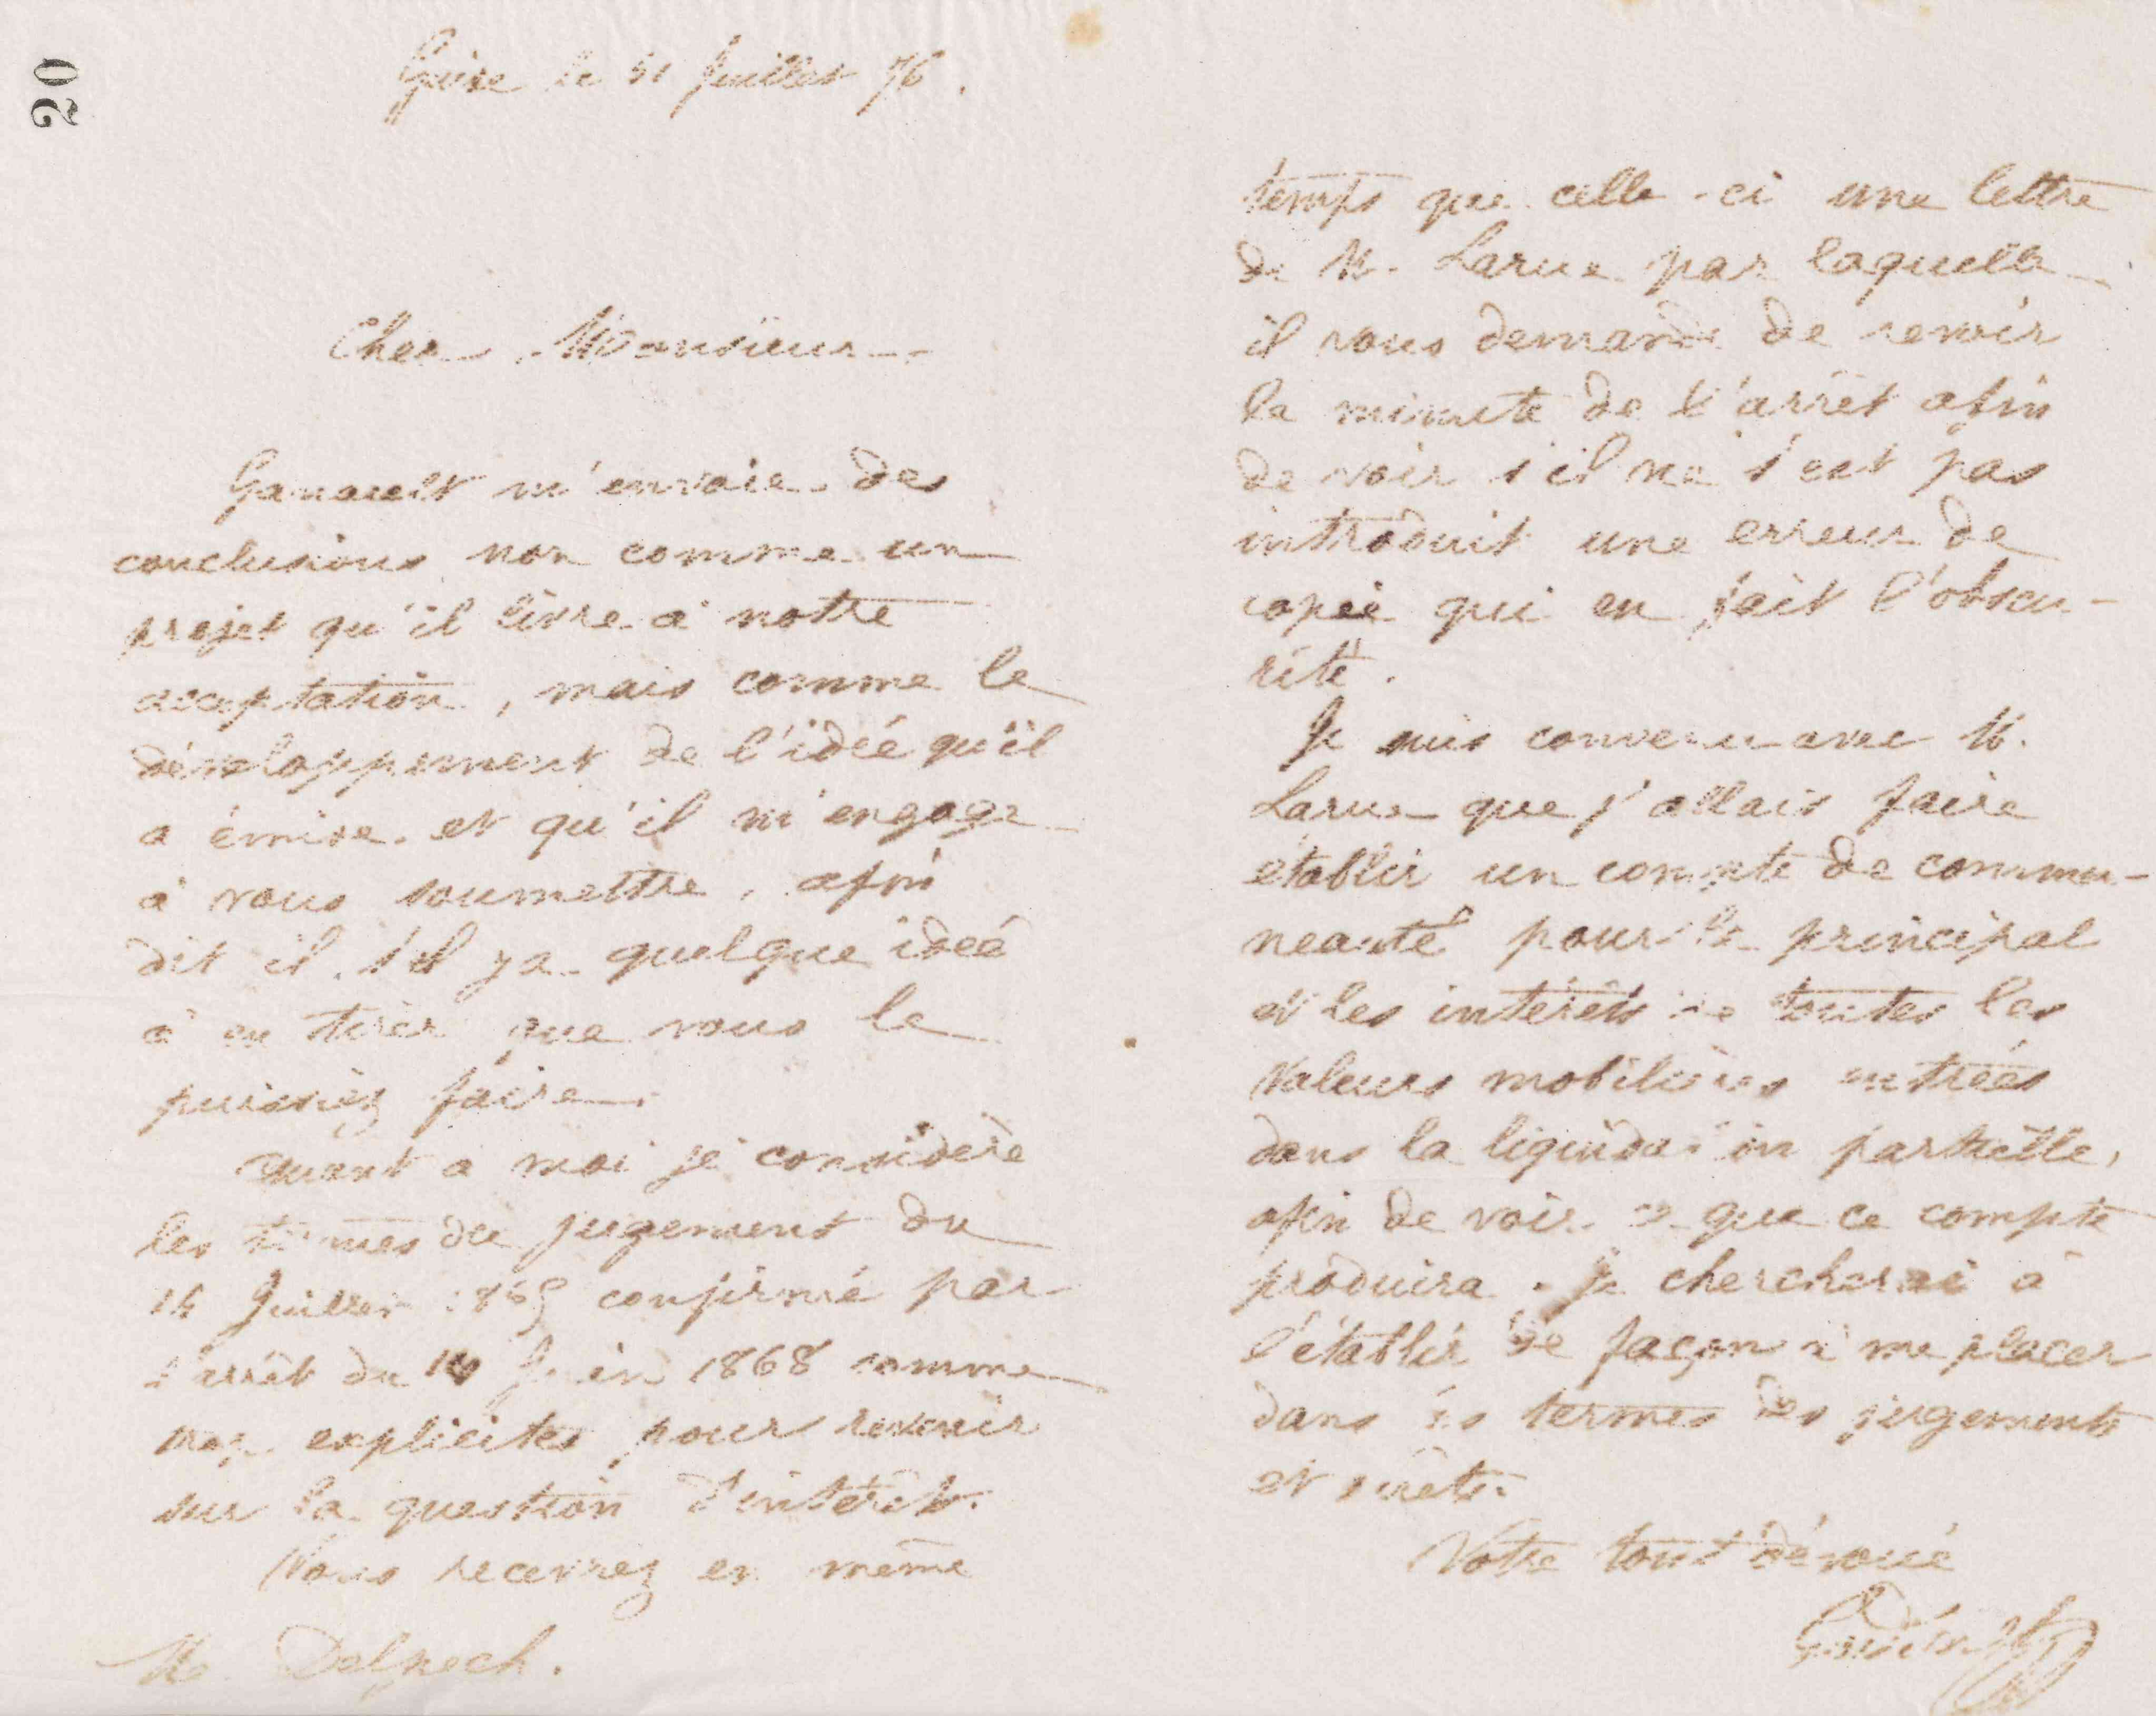 20
Guise le 31 Juillet 76.
Cher Monsieur
Ganault m'envoie des
conclusions non comme un
projet qu'il livre à notre
acceptation, mais comme le
développement de l'idée qu'il
a émise et qu'il m'engage
à vous soumettre, afin
dit il, s'il y a quelque idée
à en tirer que vous le
puissiez faire.
Quant à moi je considère
les termes du jugement du
14 Juillet 1865 confirmé par
l'arrêt du Juin 1868 comme
trop explicites pour revenir
sur la question d'intérêt.
Vous recevrez en même
M. Delpech.
temps que celle-ci une lettre
de M. Larue par laquelle
il vous demande de revoir
la minute de l'arrêt afin
de voir s'il ne s'est pas
introduit une erreur de
copie qui en fait l'obscu-
rité.
Je suis convenu avec M.
Larue que j'allais faire
établir un compte de commu-
neauté pour le principal
et les intérêts de toutes les
valeurs mobilières entrées
dans la liquidation partielle,
afin de voir ce que ce compte
produira. Je chercherai à
l'établir de façon à me placer
dans les termes des jugements
et arrêts.
Votre tout dévoué
Godin